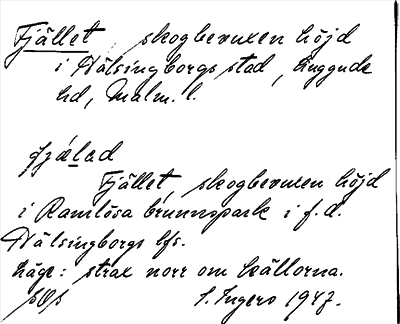 Fjället, skogbevuxen höjd
i Hälsingborgs stad, Luggude
hd, Malm. l.
fjǽlad
Fjället, skogbevuxen höjd
i Ramlösa brunnspark i f.d.
Hälsingborgs lfs.
Läge: strax norr om källorna.
S. Ingers 1947.